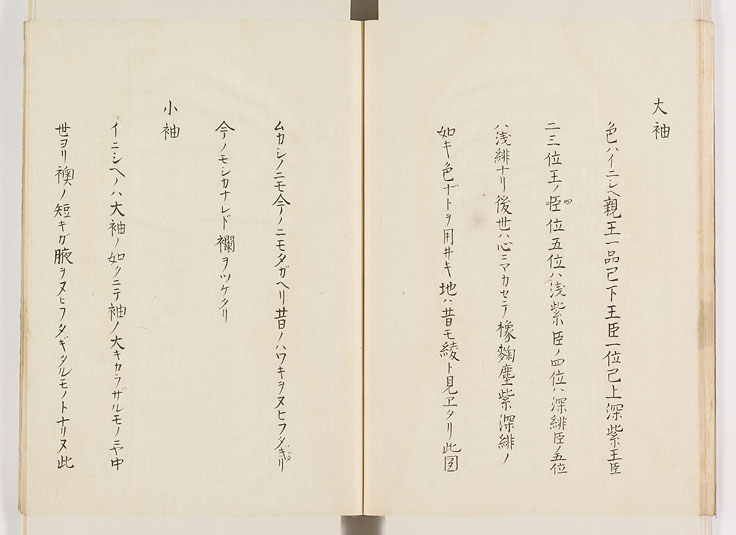 大袖
色ハイニシヘ親王一品已下王臣一位已上深紫王臣
二三位王ノ四臣位五位ハ浅紫臣ノ四位ハ深緋臣ノ五位
ハ浅緋ナリ後世ハ心ニマカセテ橡麴塵紫深緋ノ
如キ色ナトヲ用井キ地ハ昔モ綾ト見ヱタリ此圖
ムカシノニモ今ノニモタガヘリ昔ノハワキヲヌヒフタギ
今ノモシカナレド襴ヲツケタリ
小袖
イニシヘノハ大袖ノ如クニテ袖ノ大キカラザルモノニヤ中
世ヨリ襖ノ短キガ腋ヲヌヒフタギタルモノトナリヌ此